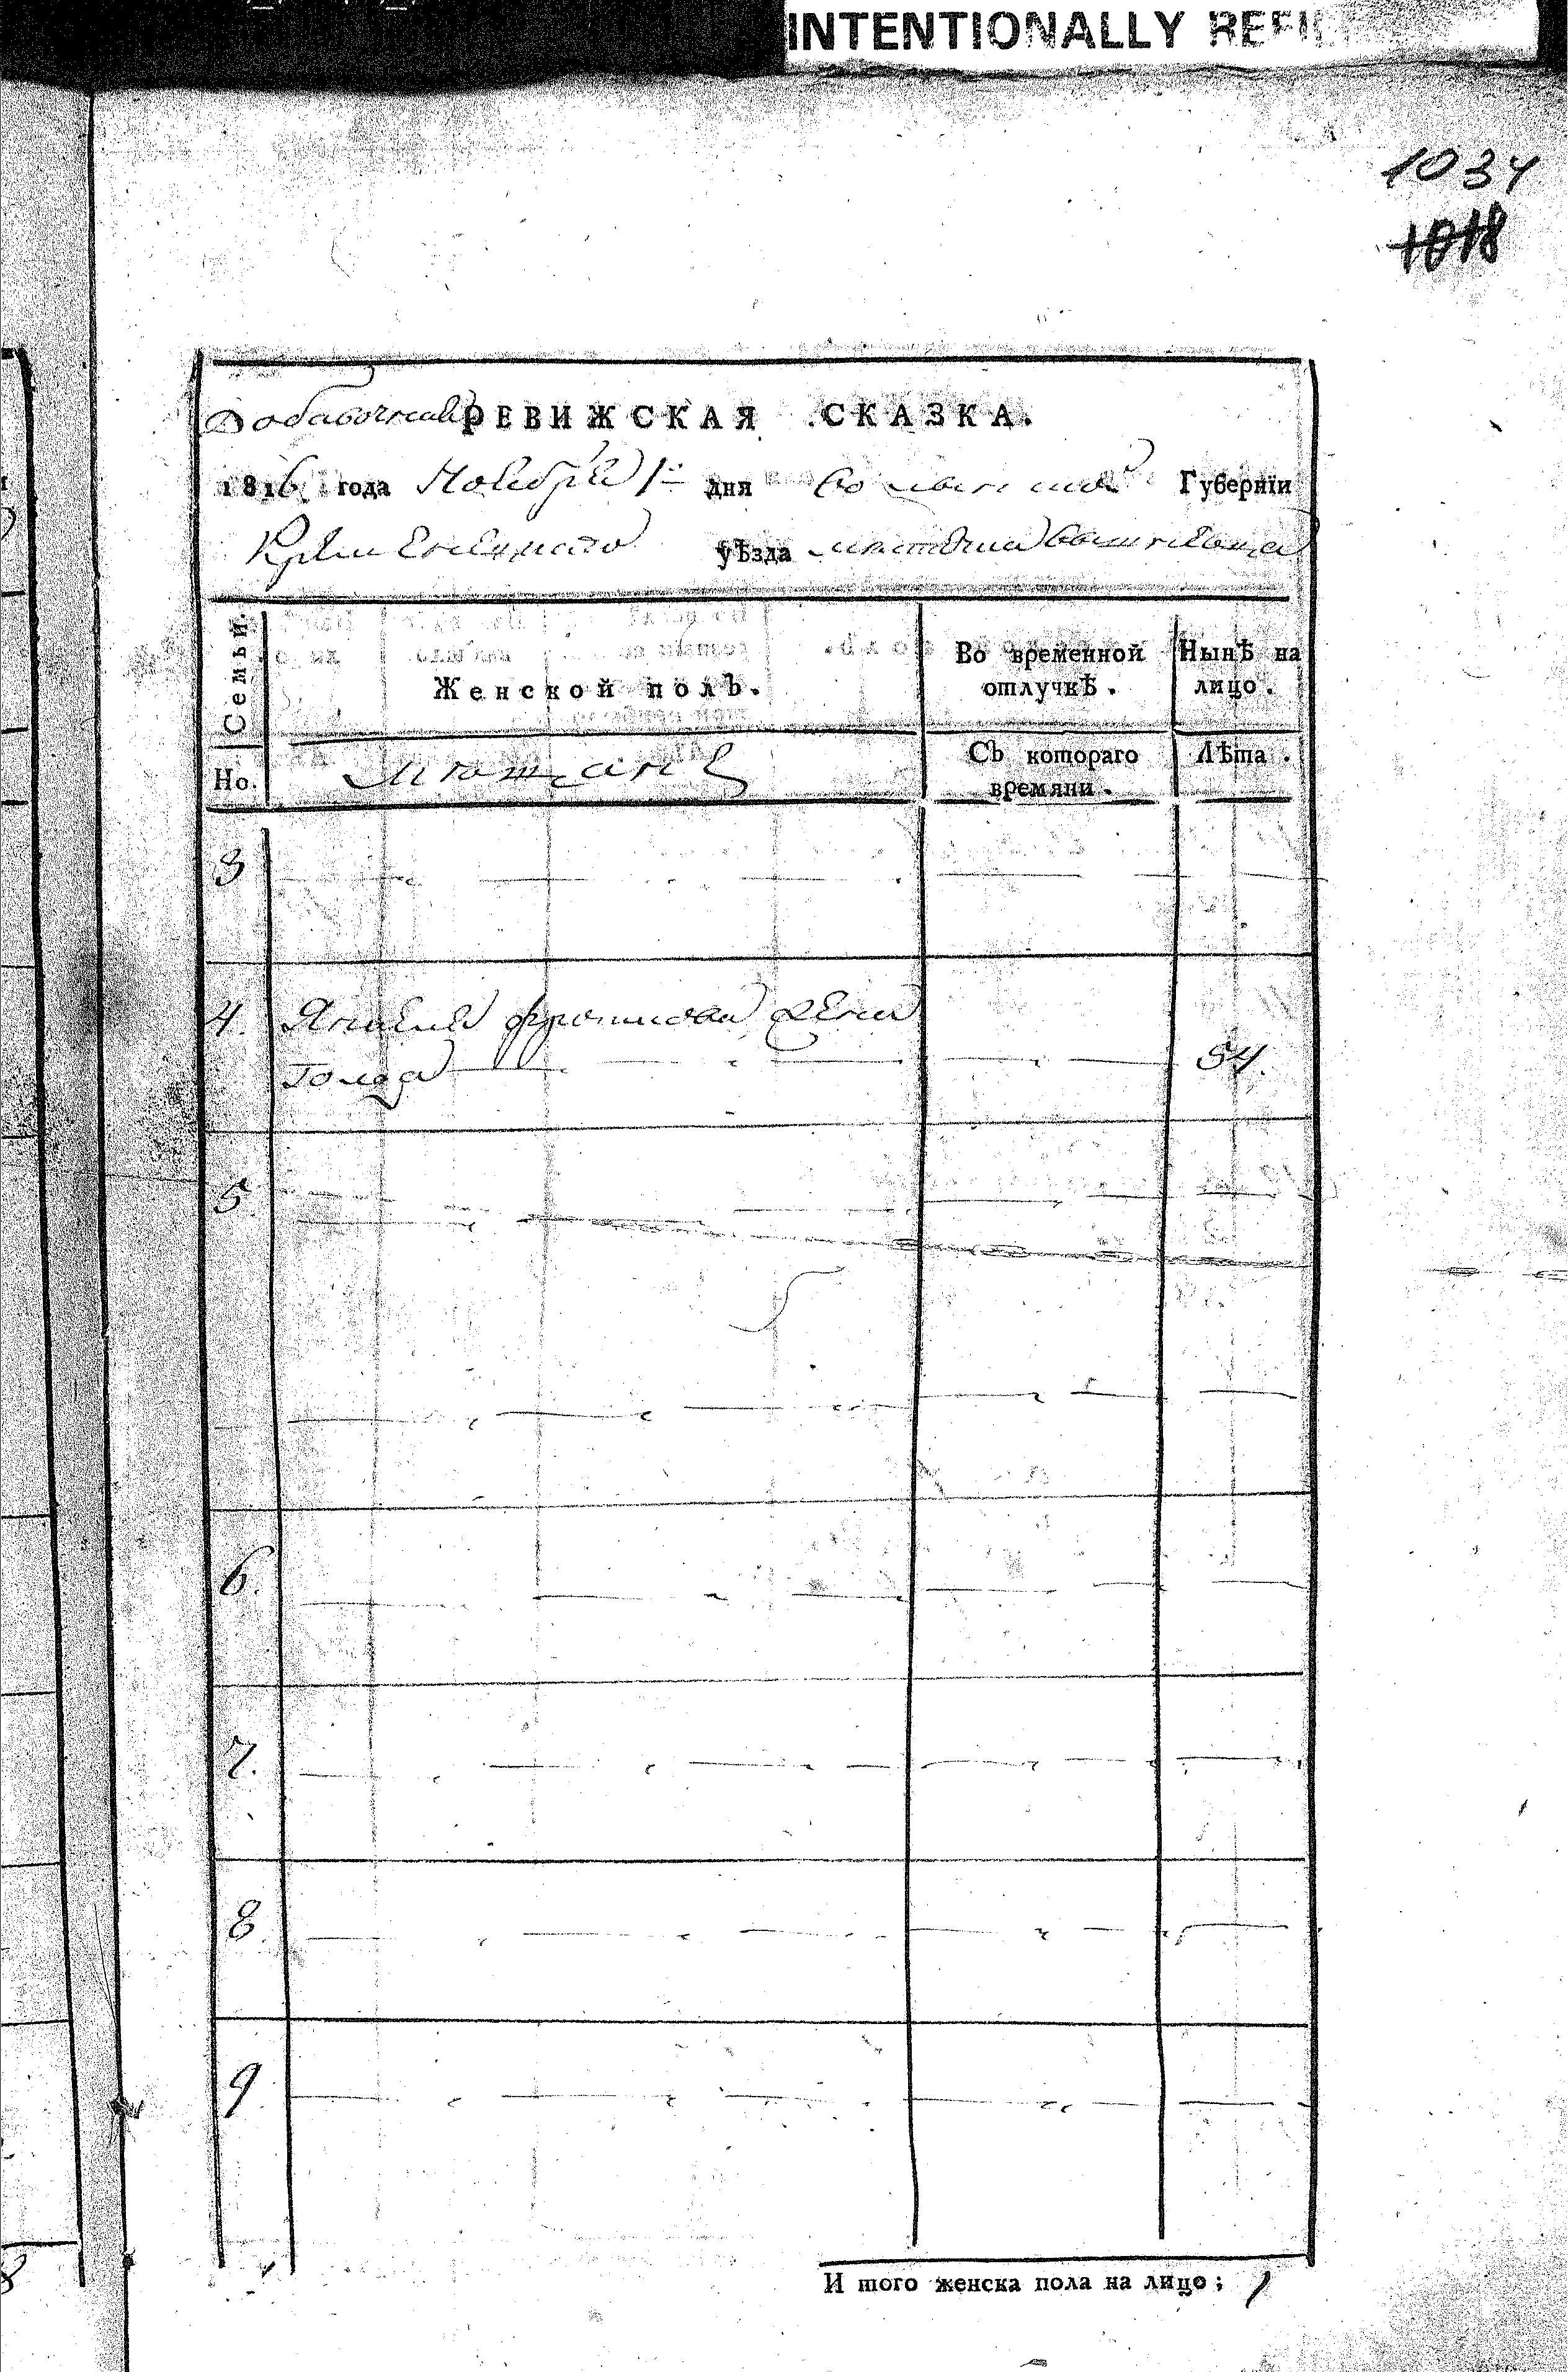 INTENTIONALLY REFIL
1034
1018
Добавочная РЕВИЖСКАЯ СКАЗКА.
1816 года Ноября 1го дня Волынской Губернїи
Кременецкаго уѣзда местечка
Семьи. Женской полъ. Во временной отлучкѣ. Нынѣ на лицо.
Но. мѣщане Съ котораго времяни. Лѣта.
3
4. жена
Голда 54.
5
6.
7.
8
9
И того женска пола на лицо; 1